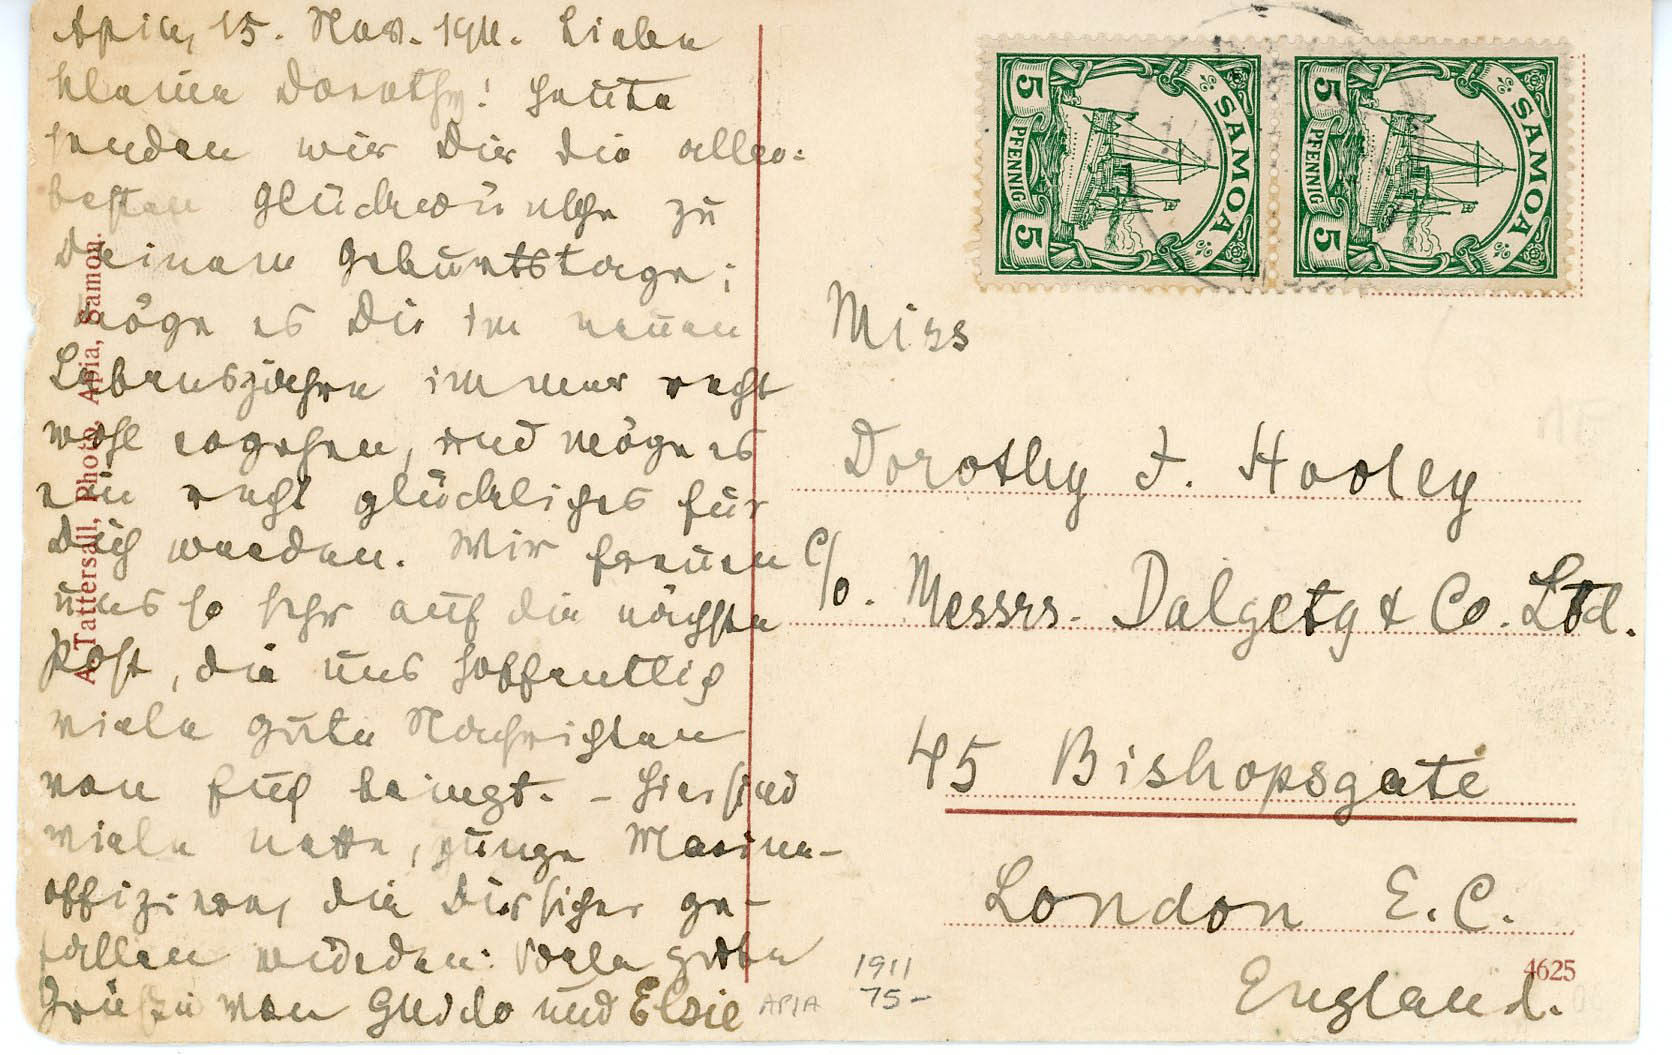 Apia, 15. Nov. 1911. Liebe
kleine Dorothy! Heute
senden wir Dir die aller-
besten Glückwünsche zu
Deinem Geburtstage;
möge es Dir im neuen
Lebensjahre immer recht
wohl ergehen, und möge es
ein recht glückliches für
Dich werden. Wir freuen
uns so sehr auf die nächste
Post, die uns hoffentlich
viele gute Nachrichten
von Euch bringt. – Hier sind
viele nette, junge Marine-
offiziere, die Dir sicher ge-
fallen würden. Viele
Grüße von Guido und Elsie
A. Tattersall, Photo, Apia, Samoa.
SAMOA
5 PFENNIG 5
SAMOA
5 PFENNIG 5
Miss
Dorothy F. Hooley
c/o. Messrs. Dalgety & Co. Ltd.
45 Bishopsgate
London E.C.
England.
4625
APIA
1911
75–